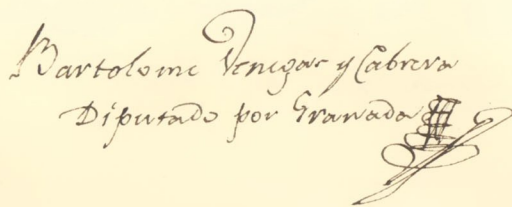 Bartolome Venegas y Cabrera
Diputado por Granada